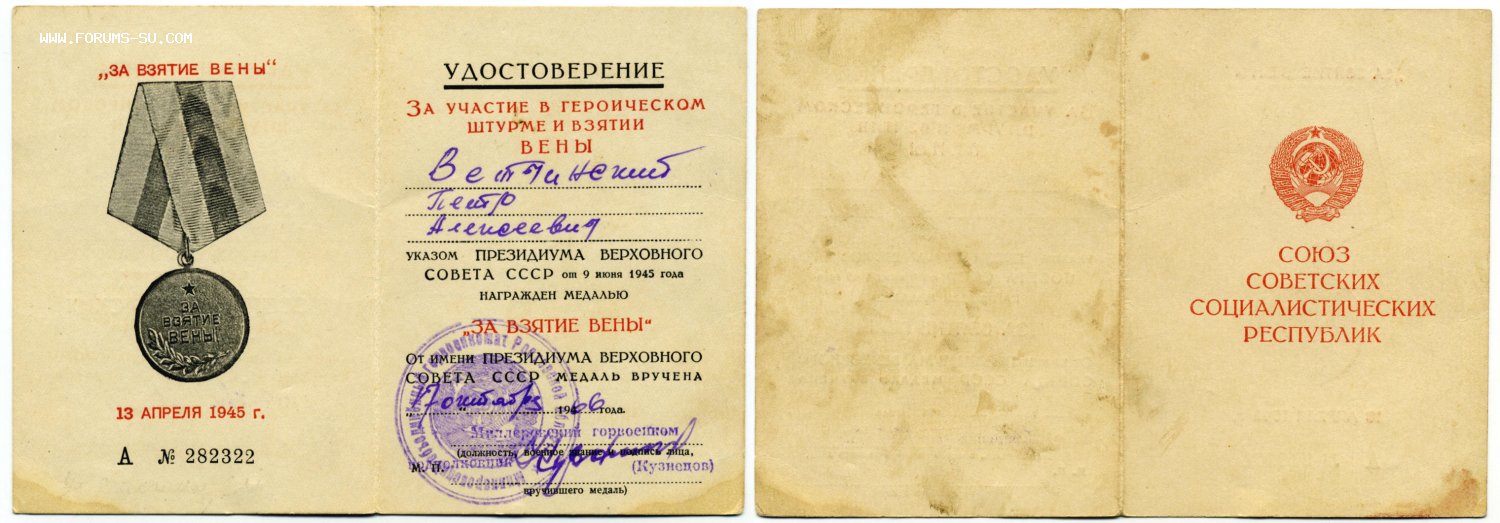 WWW.FORUMS-SU.COM
„ЗА ВЗЯТИЕ ВЕНЫ“
ЗА
ВЗЯТИЕ
ВЕНЫ
13 АПРЕЛЯ 1945 г.
А № 282322
УДОСТОВЕРЕНИЕ
ЗА УЧАСТИЕ В ГЕРОИЧЕСКОМ
ШТУРМЕ И ВЗЯТИИ
ВЕНЫ
Петр
Алексеевич
УКАЗОМ ПРЕЗИДИУМА ВЕРХОВНОГО
СОВЕТА СССР от 9 июня 1945 года
НАГРАЖДЕН МЕДАЛЬЮ
„ЗА ВЗЯТИЕ ВЕНЫ“
ОТ ИМЕНИ ПРЕЗИДИУМА ВЕРХОВНОГО
СОВЕТА СССР МЕДАЛЬ ВРУЧЕНА
„7 октября 1966 года.
Миллеровский горвоенком
(должность, военное звание и подпись лица,
М. П. полковник (Кузнецов)
вручившего медаль)
СОЮЗ
СОВЕТСКИХ
СОЦИАЛИСТИЧЕСКИХ
РЕСПУБЛИК